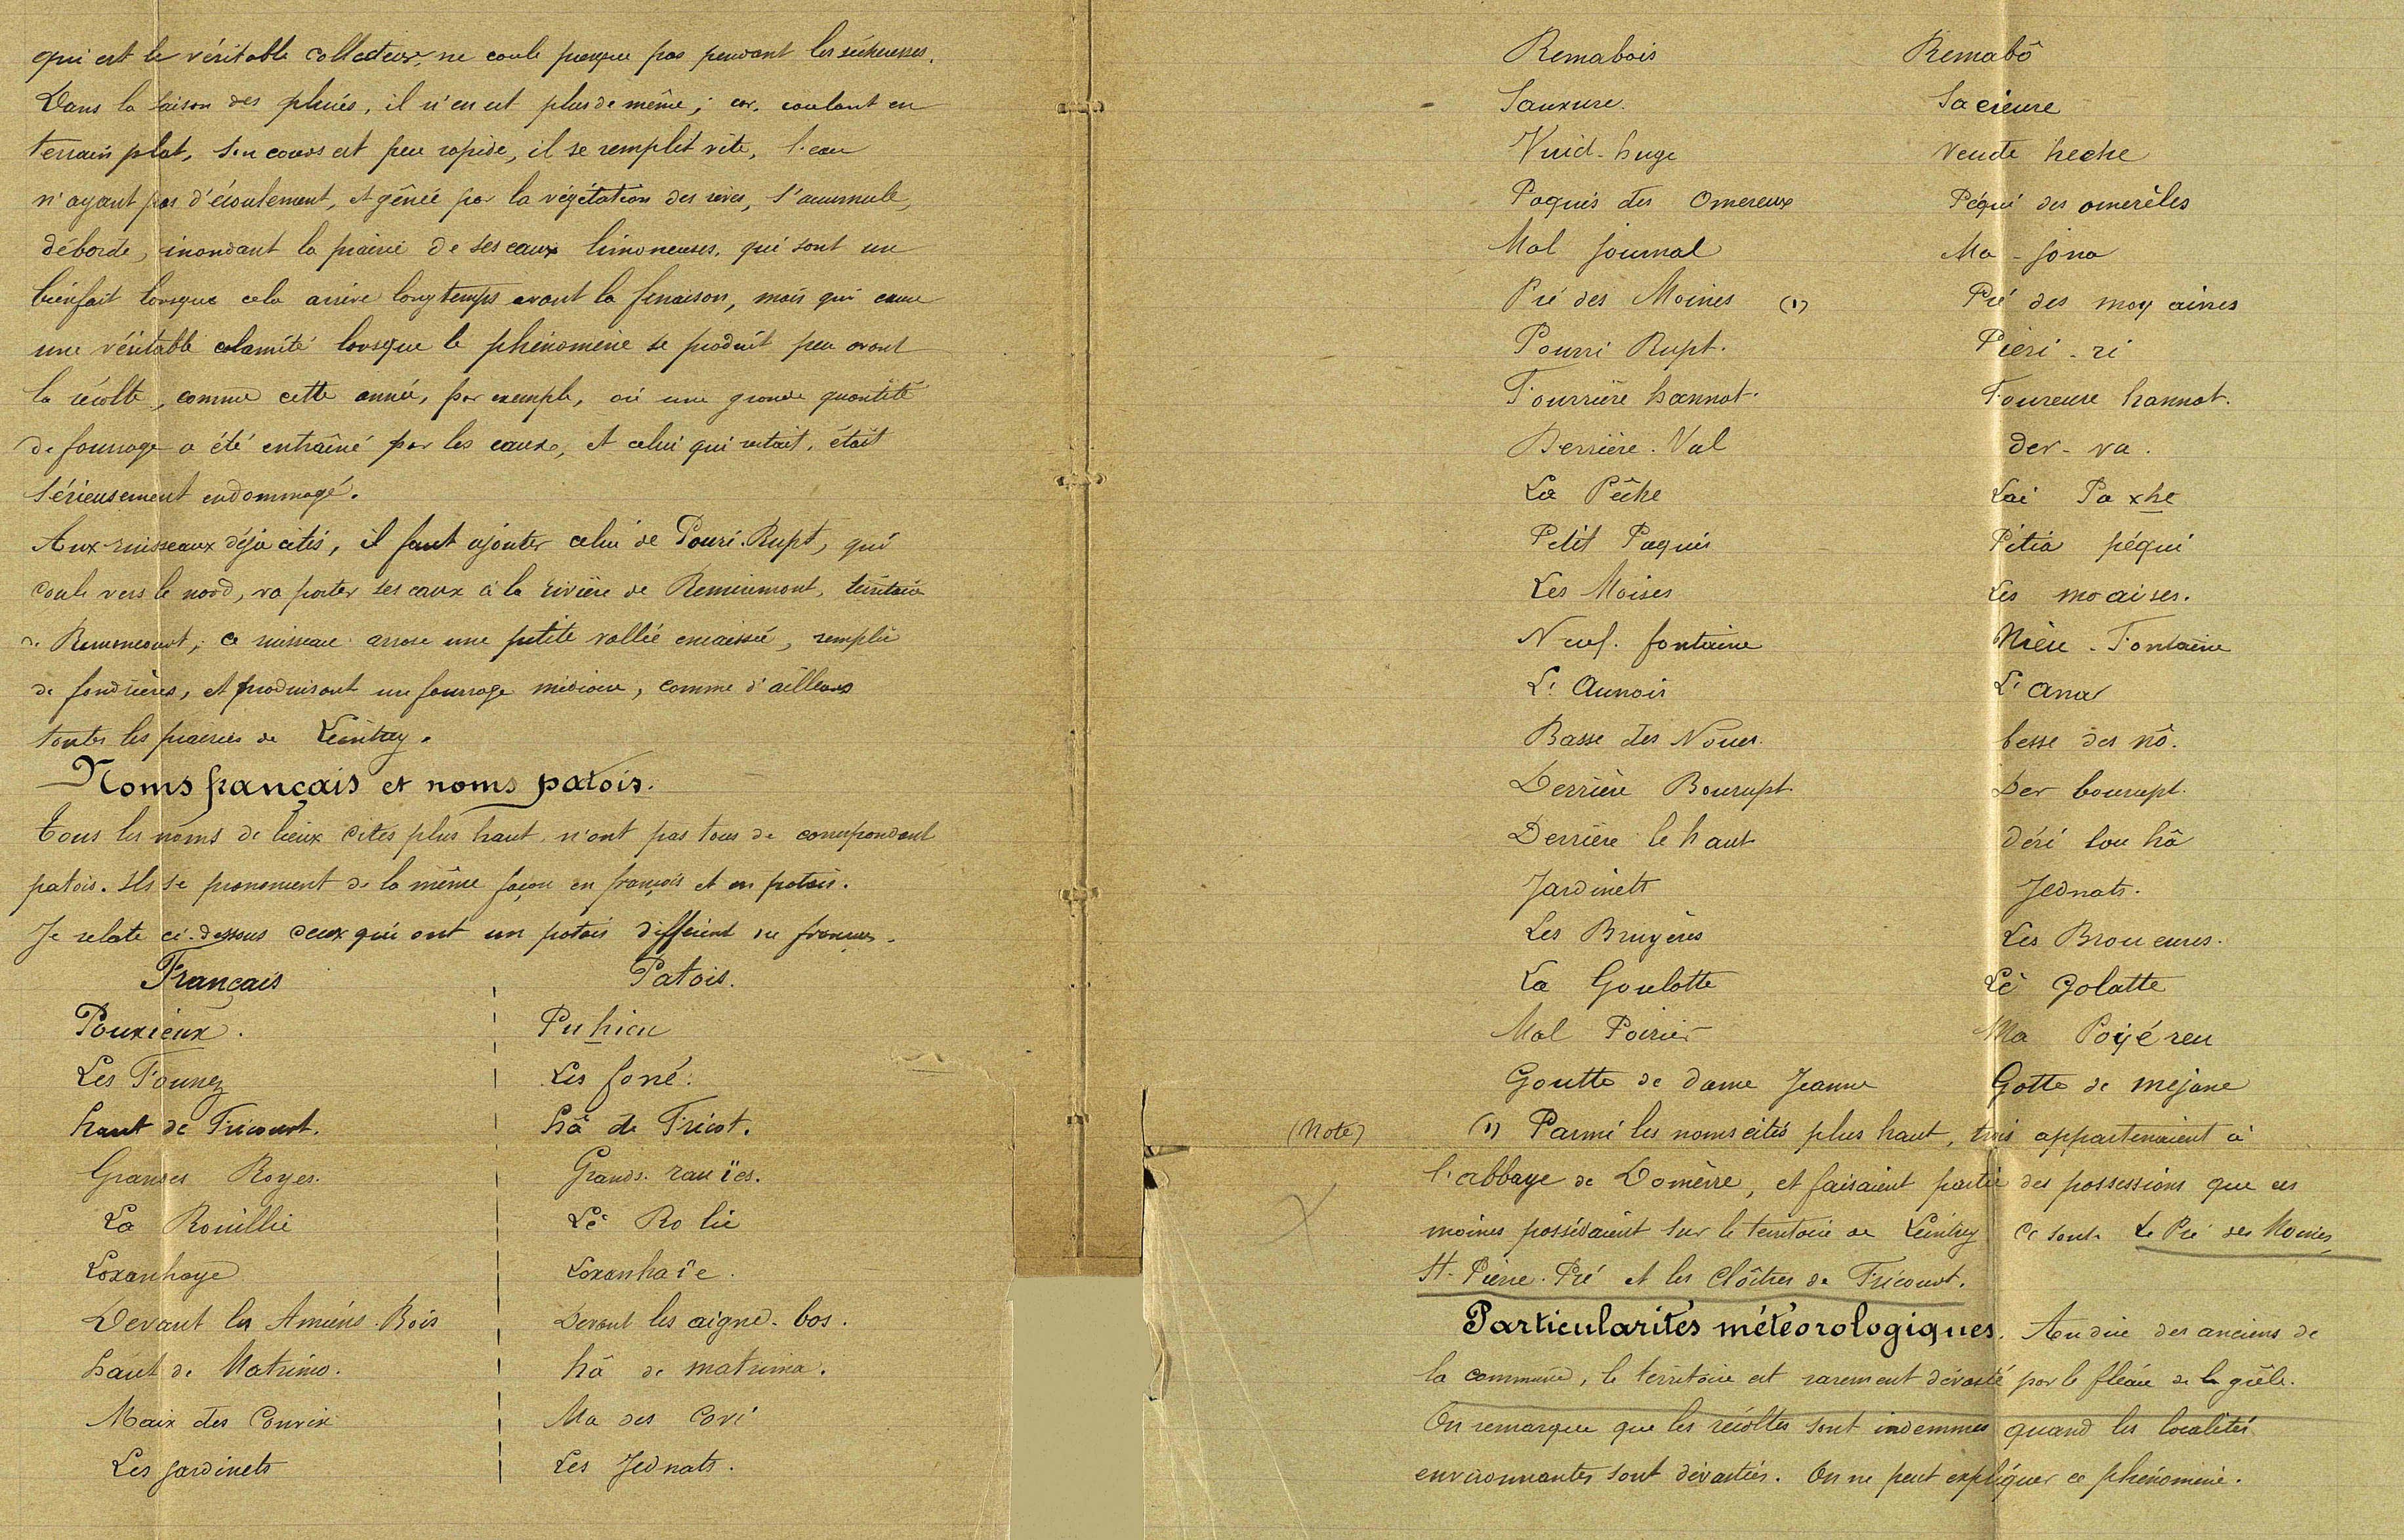 qui est le véritable collecteur, ne coule presque pas pendant les sécheresses.
Dans la saison des pluies, il n'en est plus de même ; car, coulant en
terrain plat, son cours est peu rapide, il se remplit vite, l'eau
n'ayant pas d'écoulement, et gênée par la végétation des rives, s'accumule,
déborde, inondant la prairie de ses eaux limoneuses, qui sont un
bienfait lorsque cela arrive longtemps avant la fenaison, mais qui cause
une véritable calamité lorsque le phénomène se produit peu avant
la récolte, comme cette année, par exemple, où une grande quantité
de fourrage a été entraîné par les eaux, et celui qui restait, était
sérieusement endommagé.
Aux ruisseaux déjà cités, il faut ajouter celui de Pouri-Rupt, qui
coule vers le nord, va porter ses eaux à la rivière de Remirimont, territoire
de Remoncourt ; ce ruisseau arrose une petite vallée encaissée, remplie
de fondrières, et produisant un fourrage médiocre, comme d'ailleurs
toutes les prairies de Leintrey.
Noms français et noms patois.
Tous les noms de lieux cités plus haut, n'ont pas tous de correspondant
patois. Ils se prononcent de la même façon en français et en patois.
Je relate ci-dessous ceux qui ont un patois différent du français.
Français Patois.
Pouxieux. Puhieu
Les Founez Les foné.
haut de Fricourt. hâ de Fricot.
Grandes Royes. Grands rauïes.
La Rouillie Lè Rolie
Loxanhaye Loxanhaîe.
Devant les Amiens-Bois Devant les aigne-bos.
haut de Matrimo. hâ de matrima.
Maix des Couvix Ma des Covi
Les jardinets Les Jednats.
Remabois Remabô
Sauxure. Sacieure
Vuid-huge veude heche
Paquis des Omereux Péqui des omerêles
Mal journal Ma-jona
Pré des Moines (1) Pré des moy aines
Pourri Rupt. Pieri-ri
Fourrière hannot. Foureure hannot.
Derrière-Val der-va.
La Pêche Lai Paxhe
Petit Paquis Pétia péqui
Les Moises Les moaises.
Neuf-fontaine Nieu-Fontaine
L'Aunois L'ana
Basse des Noues. besse des nô.
Derrière Bourupt. Der bourupt.
Derrière le haut déri lou hâ
Jardinets Jednats.
Les Bruyères Les Broueures.
La Goulotte Lè Golatte
Mal Poirier Ma Poyéreu
Goutte de dame Jeanne Gotte de mejane
(Note) (1) Parmi les noms cités plus haut, trois appartenaient à
l'abbaye de Domèvre, et faisaient partie des possessions que ces
moines possédaient sur le territoire de Leintrey. Ce sont. Le Pré des Moines,
St-Pierre-Pré et les Cloîtres de Fricourt.
Particularités météorologiques. Au dire des anciens de
la commune, le territoire est rarement dévasté par le fléau de la grêle.
On remarque que les récoltes sont indemnes quand les localités
environnantes sont dévastées. On ne peut expliquer ce phénomène.